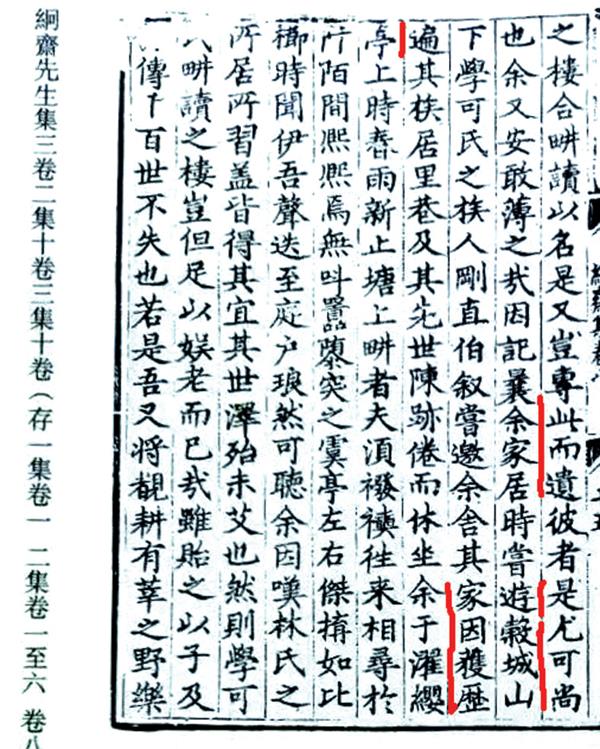 之樓合畊讀以名是又豈專此而遺彼者是尤可尚
也余又安敢薄之㢤因記曩余家居時嘗遊穀城山
下學可氏之族人剛直伯叙嘗邀余舍其家因獲歴
遍其族居里巷及其先世陳跡倦而休坐余于濯纓
亭上時春雨新止塘上畊者夫湏襏襫徃来相尋於
阡陌間熈熈焉無呌囂隳突之虞亭左右傑搆如比
櫛時聞伊吾聲迭至庭户琅然可聽余因嘆林氏之
所居所習盖皆得其宜其世澤殆未艾也然則學可
氏畊讀之樓豈但足以娱老而已㢤雖貽之以子及
傳千百世不失也若是吾又将覩耕有莘之野樂
絅齋先生集三卷二集十卷三集十卷（存一集卷一 二集卷一至六 卷八